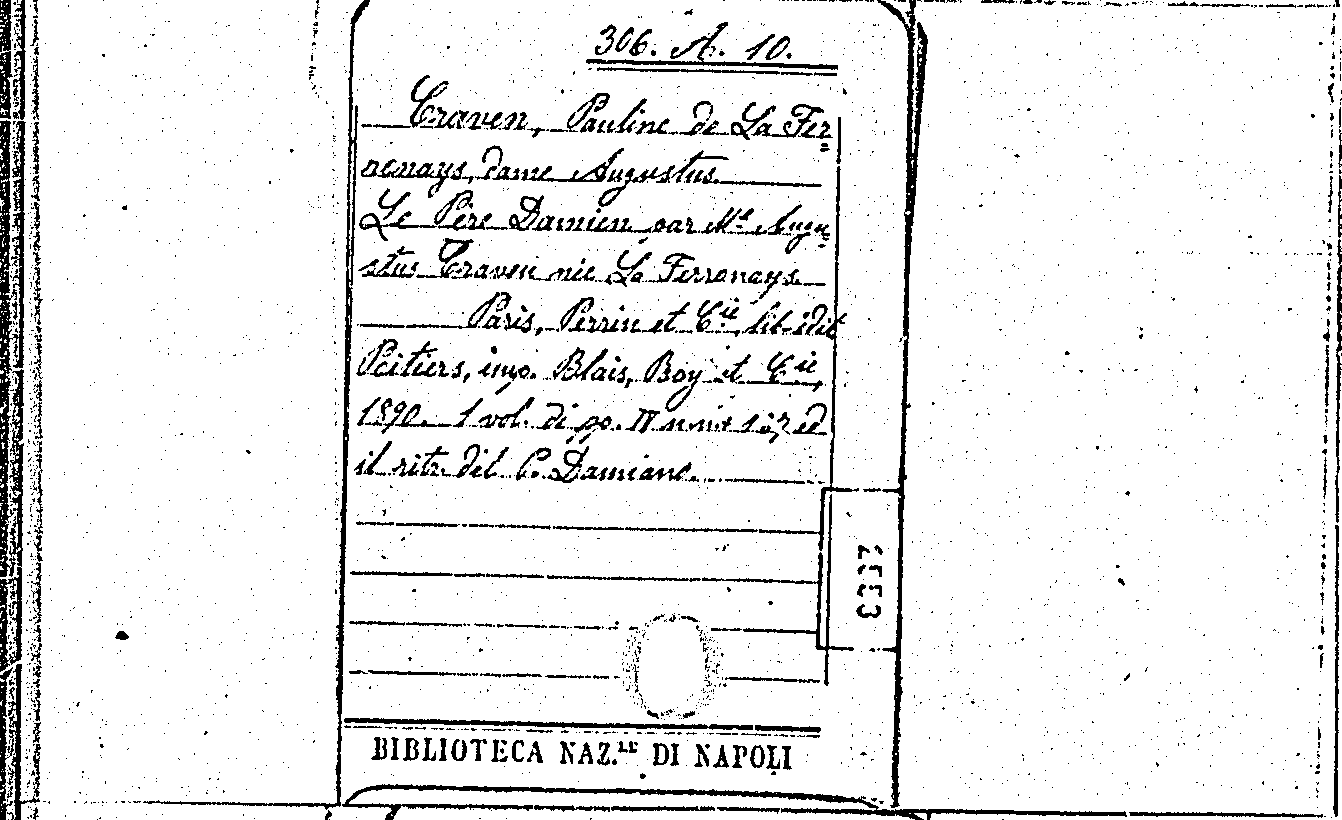 306. A. 10.
Craven, Pauline de La Fer=
ronays, dame Augustus.
Le Père Damien par Mᵉ Augu=
stus Craven née La Ferronays
Paris, Perrin et Cⁱᵉ, lib-édit
Poitiers, imp. Blais, Roy et Cⁱᵉ,
1890. 1 vol. di pp. II ed
il ritr. del P. Damiano.
BIBLIOTECA NAZ.ᴸᴱ DI NAPOLI